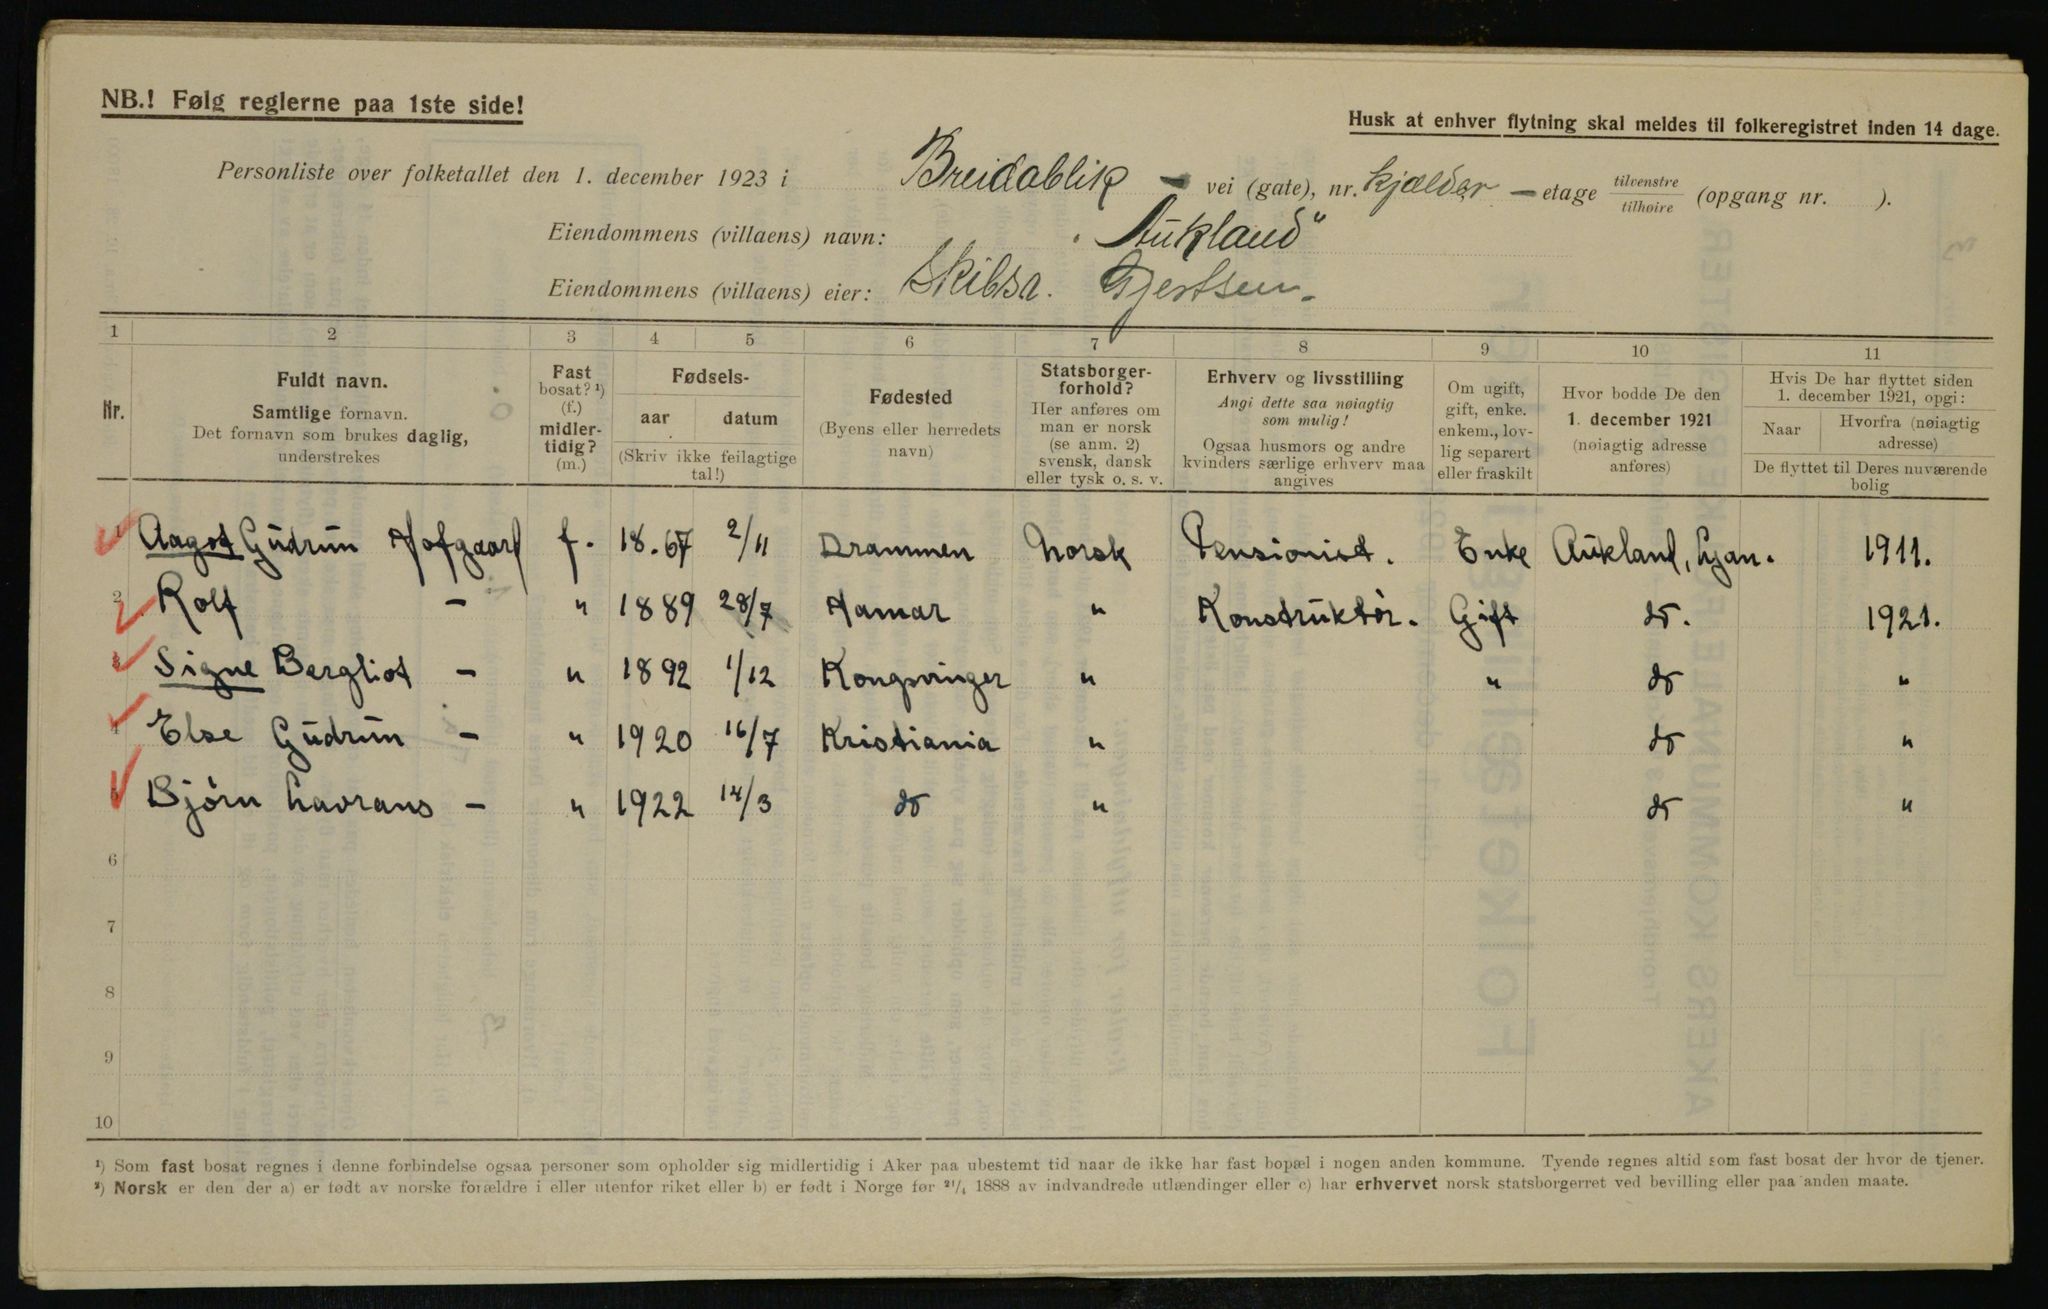 NB.! Følg reglerne paa 1ste side!
Husk at enhver flytning skal meldes til folkeregistret inden 14 dage.
Personliste over folketallet den 1. december 1923 i Breidablik — vei (gate), nr. kjælder — etage tilvenstre tilhøire (opgang nr. ).
Eiendommens (villaens) navn: "Aukland"
Eiendommens (villaens) eier: Skibsa. Gjertsen.
1 2 3 4 5 6 7 8 9 10 11
Nr.
Fuldt navn.
Samtlige fornavn.
Det fornavn som brukes daglig,
understrekes
Fast
bosat? ¹)
(f.)
midler-
tidig?
(m.)
Fødsels-
aar datum
(Skriv ikke feilagtige
tal!)
Fødested
(Byens eller herredets
navn)
Statsborger-
forhold?
Her anføres om
man er norsk
(se anm. 2)
svensk, dansk
eller tysk o. s. v.
Erhverv og livsstilling
Angi dette saa nøiagtig
som mulig!
Ogsaa husmors og andre
kvinders særlige erhverv maa
angives
Om ugift,
gift, enke.
enkem., lov-
lig separert
eller fraskilt
Hvor bodde De den
1. december 1921
(nøiagtig adresse
anføres)
Hvis De har flyttet siden
1. december 1921, opgi:
Naar Hvorfra (nøiagtig
adresse)
De flyttet til Deres nuværende
bolig
1 Aagot Gudrun Hofgaard f. 18.67 2/11 Drammen Norsk Pensionist. Enke Aukland, Ljan. 1911.
2 Rolf — " 1889 28/7 Hamar " Konstruktør. Gift do. 1921.
3 Signe Bergliot — " 1892 1/12 Kongsvinger " " do "
4 Else Gudrun — " 1920 16/7 Kristiania " do "
5 Bjørn Lavrans — " 1922 14/3 do " do "
6
7
8
9
10
¹) Som fast bosat regnes i denne forbindelse ogsaa personer som opholder sig midlertidig i Aker paa ubestemt tid naar de ikke har fast bopæl i nogen anden kommune. Tyende regnes altid som fast bosat der hvor de tjener.
²) Norsk er den der a) er født av norske forældre i eller utenfor riket eller b) er født i Norge før ²¹/₄ 1888 av indvandrede utlændinger eller c) har erhvervet norsk statsborgerret ved bevilling eller paa anden maate.